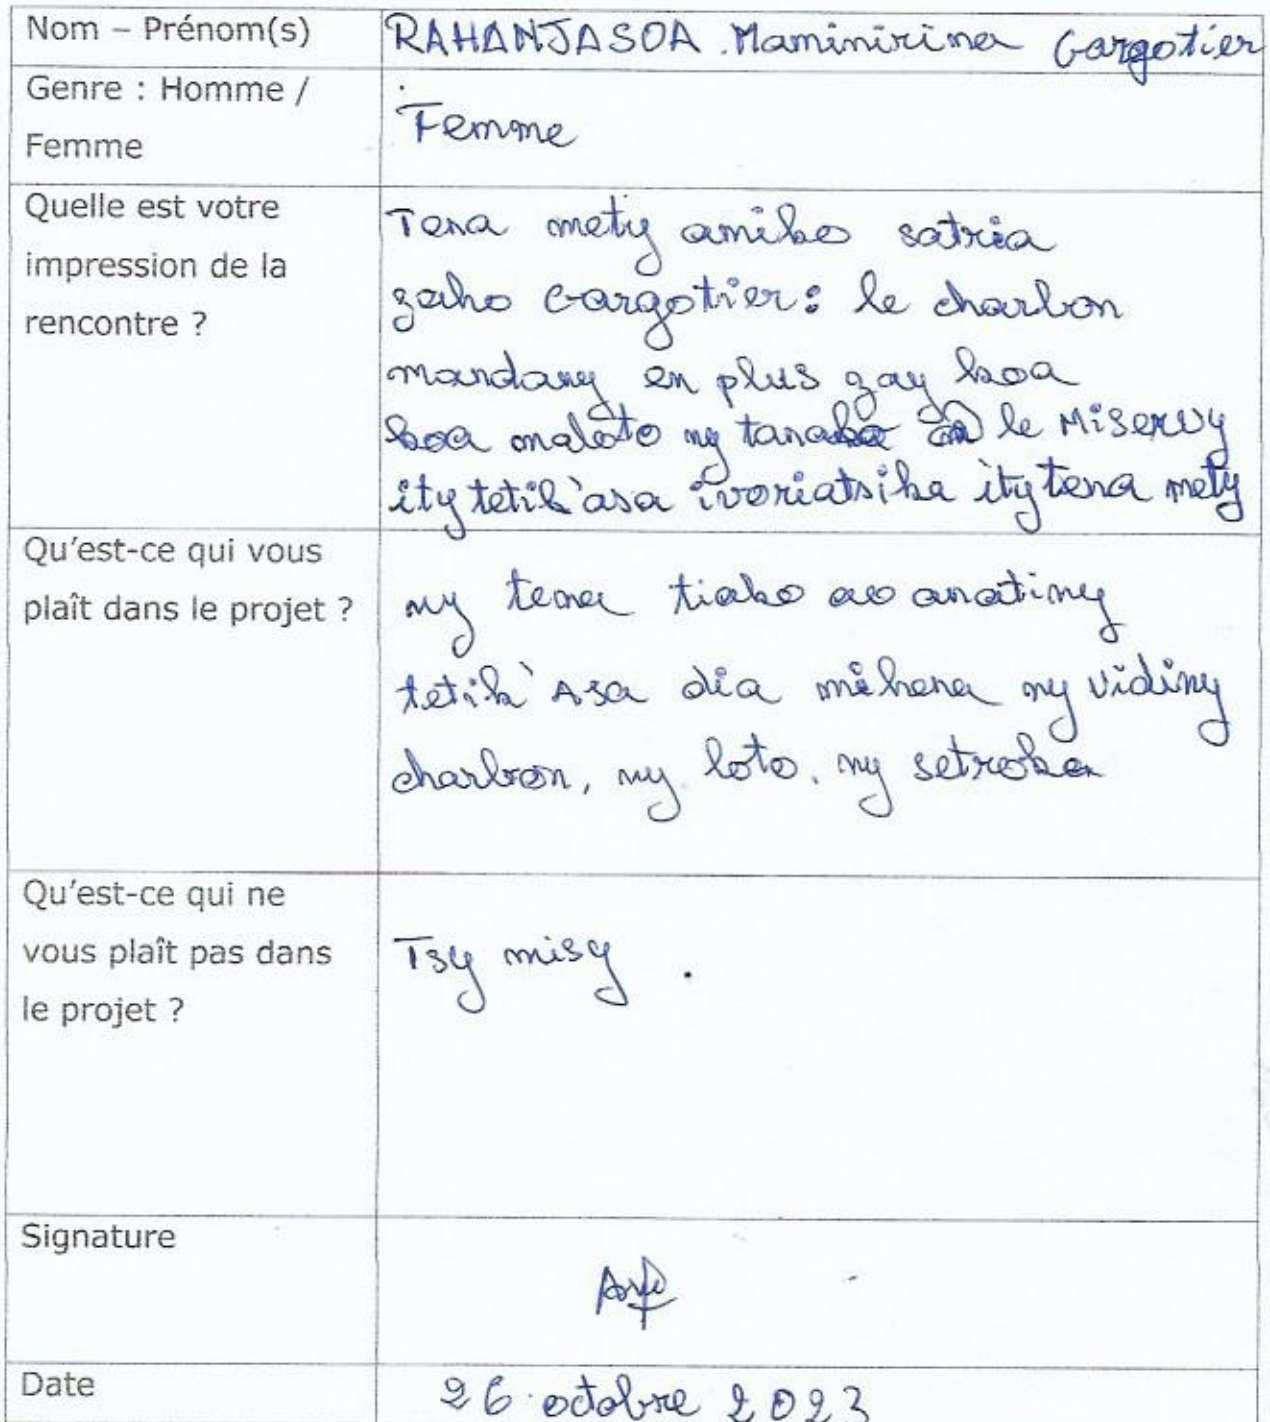 Nom – Prénom(s)
RAHANJASOA Maminirina Gargotier
Genre : Homme /
Femme
Femme
Quelle est votre
impression de la
rencontre ?
Tena mety amiko satria
zaho Gargotier : le charbon
mandany en plus zay koa
koa maloto ny tanako le Miservy
ity tetik'asa ivoriatsika ity tena mety
Qu'est-ce qui vous
plaît dans le projet ?
ny tena tiako ao anatiny
tetik'Asa dia mihena ny vidiny
charbon, ny loto, ny setroka
Qu'est-ce qui ne
vous plaît pas dans
le projet ?
Tsy misy .
Signature
Date
26 octobre 2023